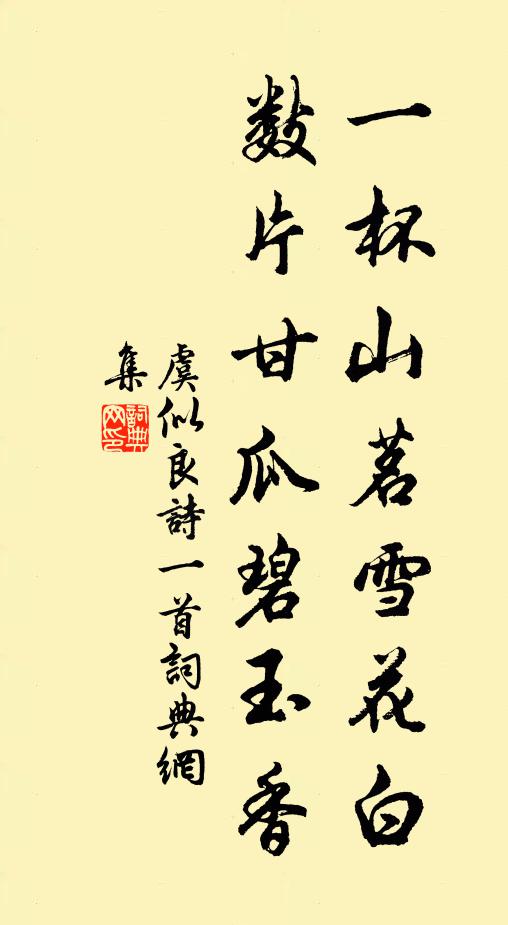 一杯山茗雪花白
数片甘瓜碧玉香
虞似良詩一首詞典網
集
詞典网印